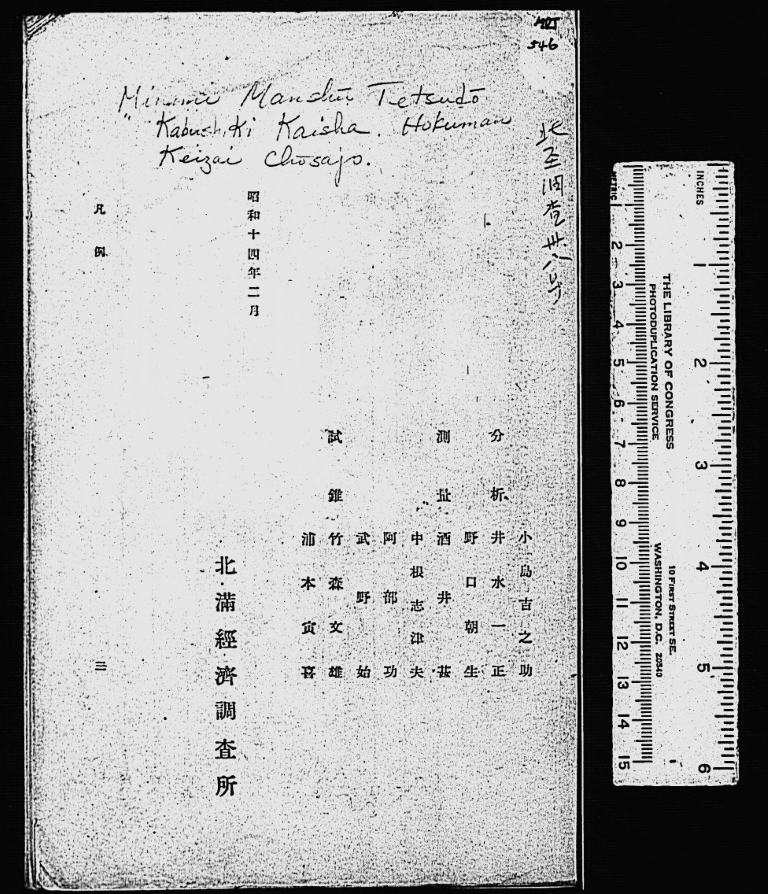 MOJ
546
Minami Manshū Tetsudō
Kabushiki Kaisha. Hokuman
Keizai Chōsajo.
北経調査卅八号
小島吉之助
分析 井水一正
野口朝生
測量 酒井甚
中根志津夫
阿部功
武野始
試錐 竹森文雄
浦本寅喜
昭和十四年二月
北滿經濟調査所
凡例
三
METRIC
1 2 3 4 5 6 7 8 9 10 11 12 13 14 15
THE LIBRARY OF CONGRESS
PHOTODUPLICATION SERVICE
10 FIRST STREET SE.
WASHINGTON, D.C. 20540
INCHES
1 2 3 4 5 6